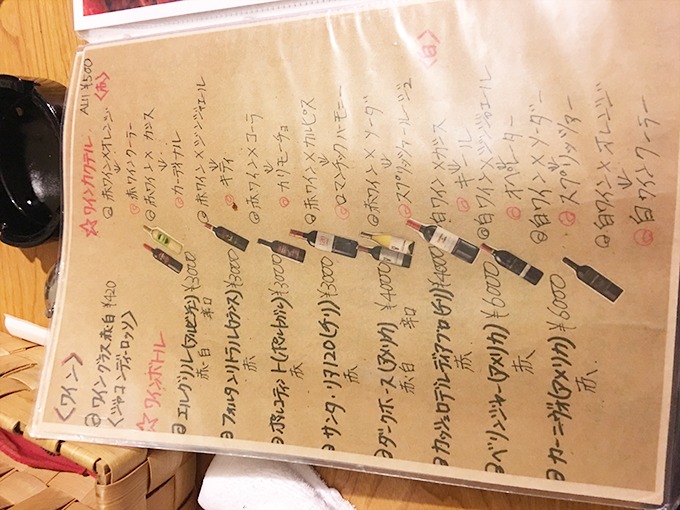 〈ワイン〉
ワイングラス赤白 ¥420
☆ワインボトル
エルグリル(アルゼンチン) ¥3000
赤・白 辛口
フォルタンリトラル(フランス) ¥3000
赤
ボルティント(ポルトガル) ¥3000
赤
サンタ・リタ120(チリ) ¥3000
赤
ダークホース(アメリカ) ¥4000
赤白 辛口
カッシェロデルディアブロ(チリ) ¥4000
赤
ベリンジャー(アメリカ) ¥6000
赤
カーニヴォ(アメリカ) ¥6000
赤
☆ワインカクテル All ¥500
〈赤〉
赤ワイン×オレンジ
↓
赤ワインクーラー
赤ワイン×カシス
↓
カーディナル
赤ワイン×ジンジャエール
↓
キティ
赤ワイン×コーラ
↓
カリモーチョ
赤ワイン×カルピス
↓
ロマンチックハーモニー
赤ワイン×ソーダ
↓
スプリッツァールージュ
〈白〉
白ワイン×カシス
↓
キール
白ワイン×ジンジャエール
↓
オペレーター
白ワイン×ソーダー
↓
スプリッツァー
白ワイン×オレンジ
↓
白ワインクーラー